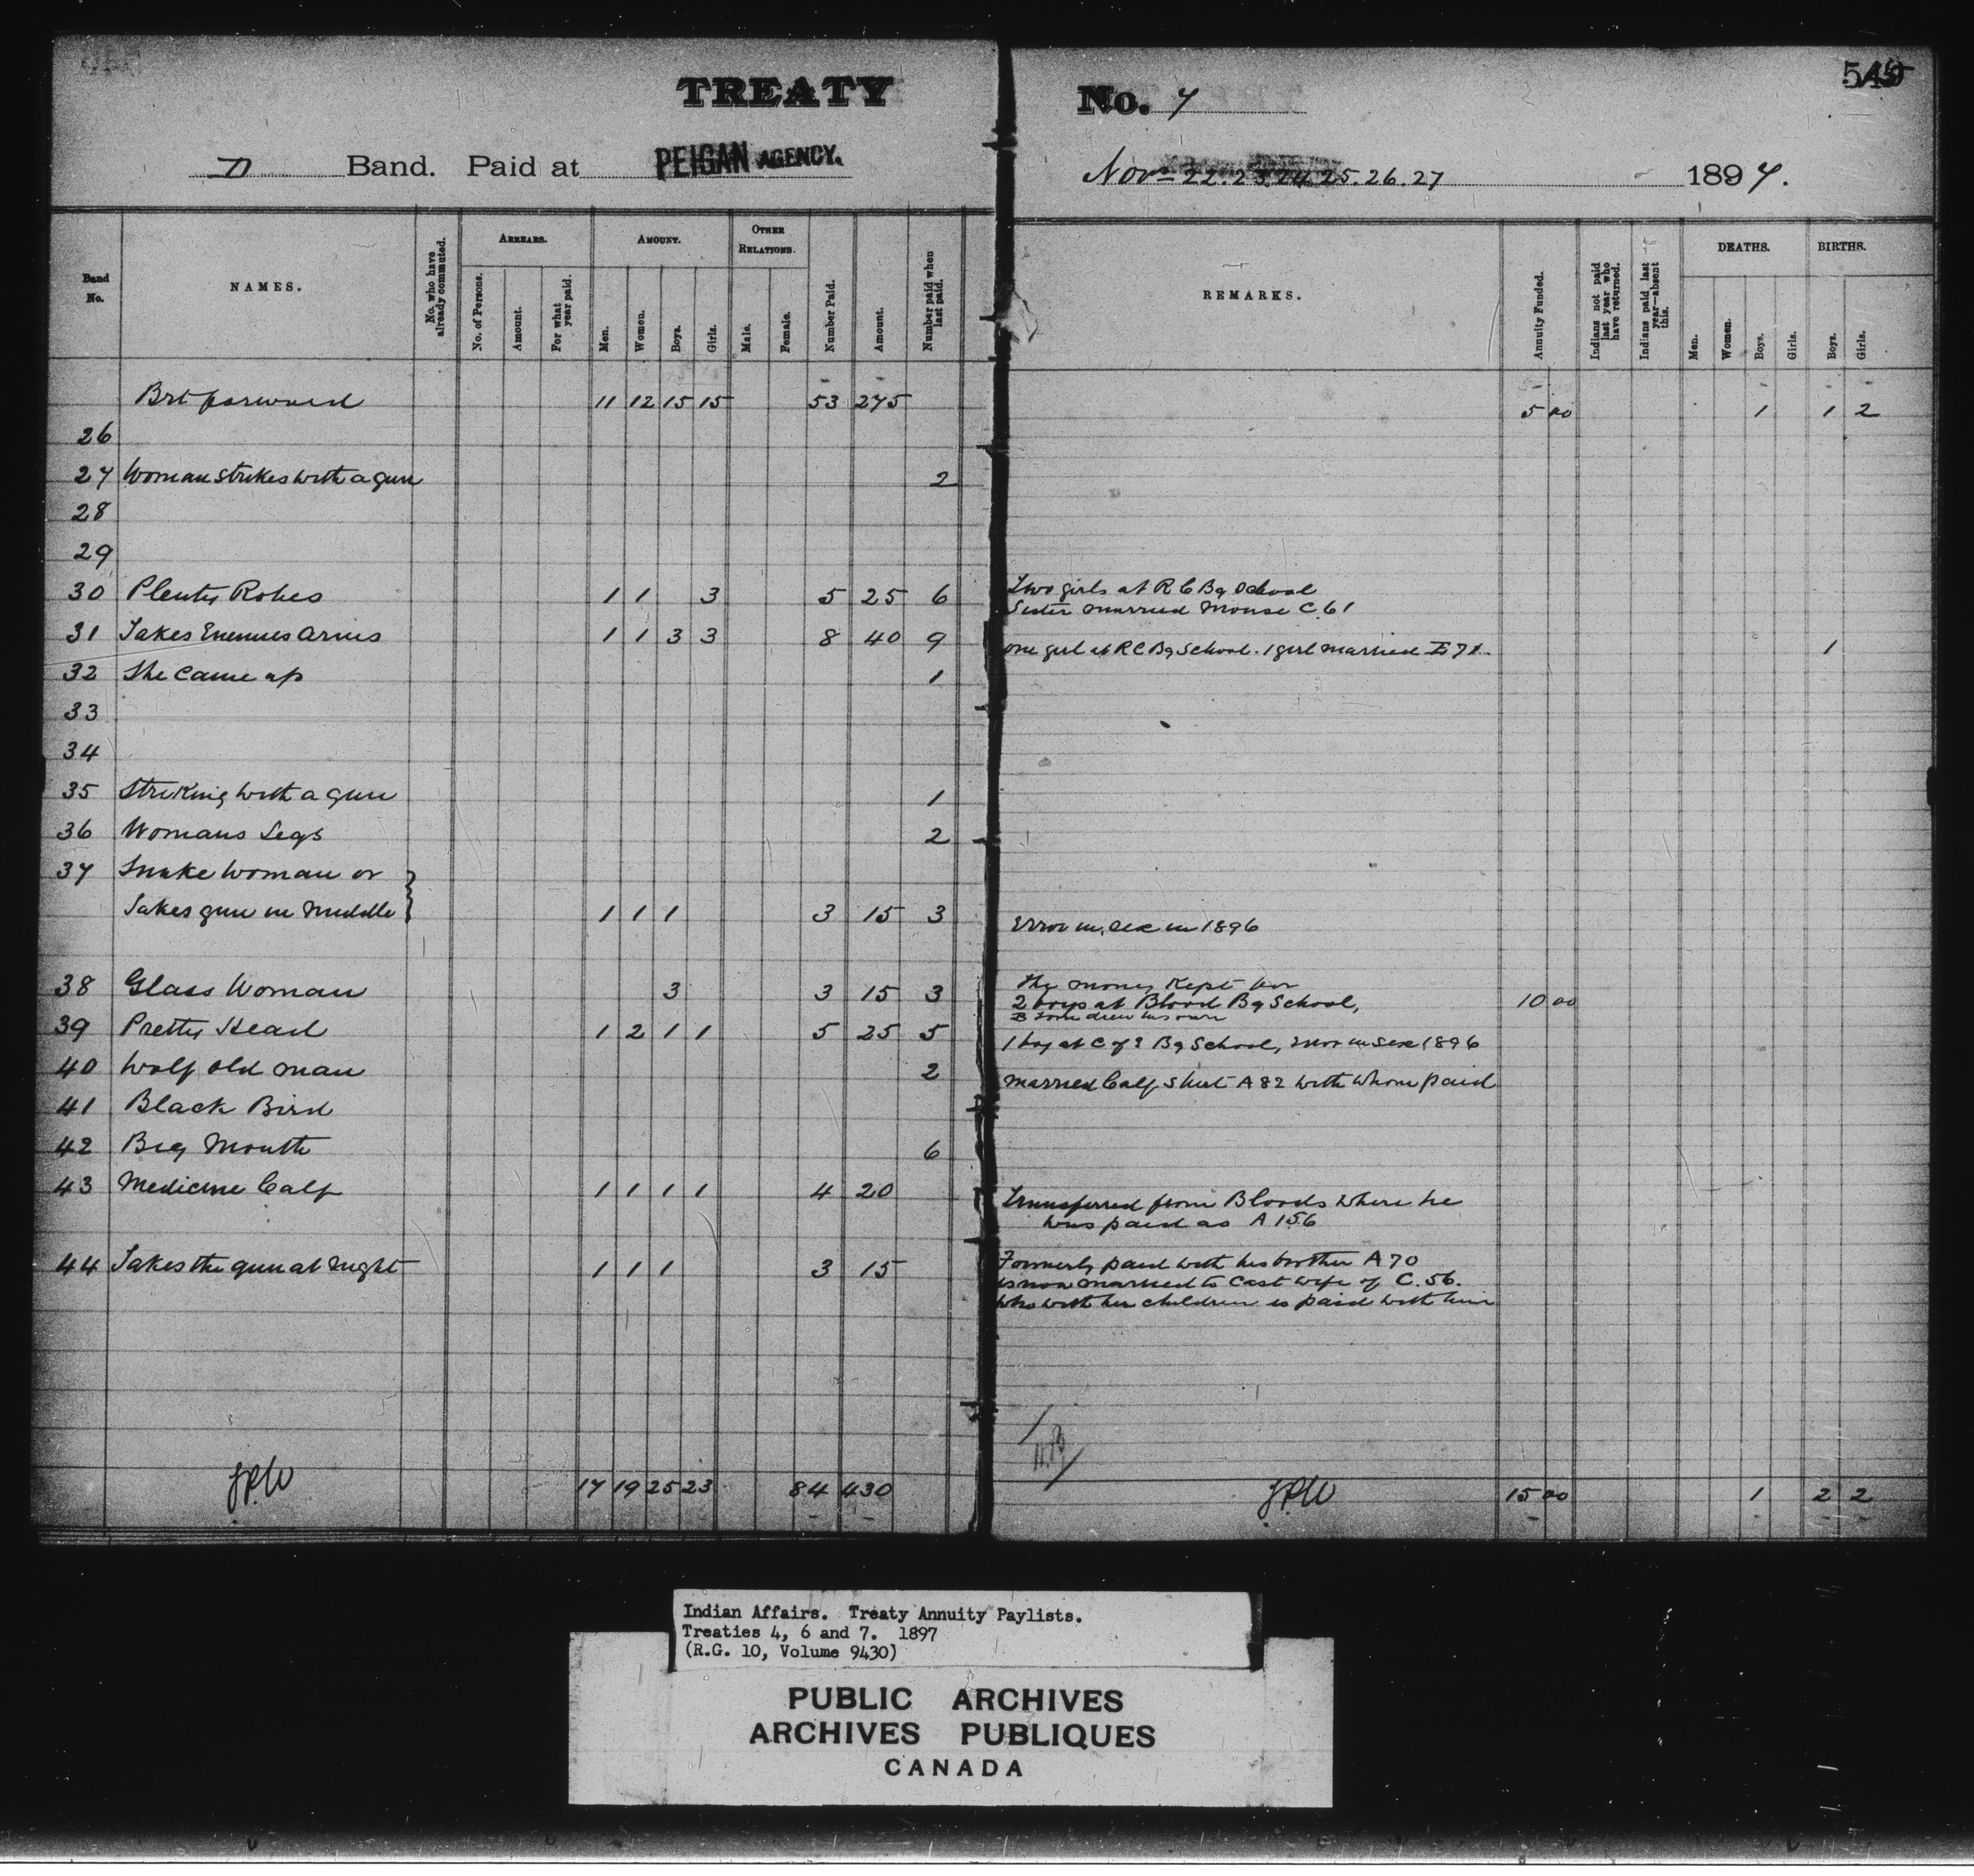 TREATY No. 7
545
D Band. Paid at PEIGAN AGENCY. Nov 22.23.24.25.26.27 1897.
Band No. NAMES. No. who have already commuted. ARREARS. No. of Persons. Amount. For what year paid. AMOUNT. Men. Women. Boys. Girls. OTHER RELATIONS. Male. Female. Number Paid. Amount. Number paid when last paid. REMARKS. Annuity Funded. Indians not paid last year who have returned. Indians paid last year—absent this. DEATHS. Men. Women. Boys. Girls. BIRTHS. Boys. Girls.
Brt forward 11 12 15 15 53 275 5 00 1 1 2
26
27 Woman Strikes with a gun 2
28
29
30 Plenty Robes 1 1 3 5 25 6 Two girls at R C Bg School
Sister married Mouse C 61
31 Takes Enemies Arms 1 1 3 3 8 40 9 one girl at R C Bg School. 1 girl married E 71. 1
32 She came up 1
33
34
35 Striking with a gun 1
36 Womans Legs 2
37 Snake Woman or
Takes gun in Middle 1 1 1 3 15 3 Error in sex in 1896
38 Glass Woman 3 3 15 3 The money kept for
2 boys at Blood Bg School, 10 00
drew his own
39 Pretty Head 1 2 1 1 5 25 5 1 boy at C of E Bg School, Error in sex 1896
40 Wolf old man 2 married Calf Shirt A 82 with whom paid
41 Black Bird
42 Big Mouth 6
43 Medicine Calf 1 1 1 1 4 20 Transferred from Bloods where he
was paid as A 156
44 Takes the gun at night 1 1 1 3 15 Formerly paid with his brother A 70
is now married to Cast wife of C. 56.
who with her children is paid with him
17 19 25 23 84 430 15 00 1 2 2
Indian Affairs. Treaty Annuity Paylists.
Treaties 4, 6 and 7. 1897
(R.G. 10, Volume 9430)
PUBLIC ARCHIVES
ARCHIVES PUBLIQUES
CANADA